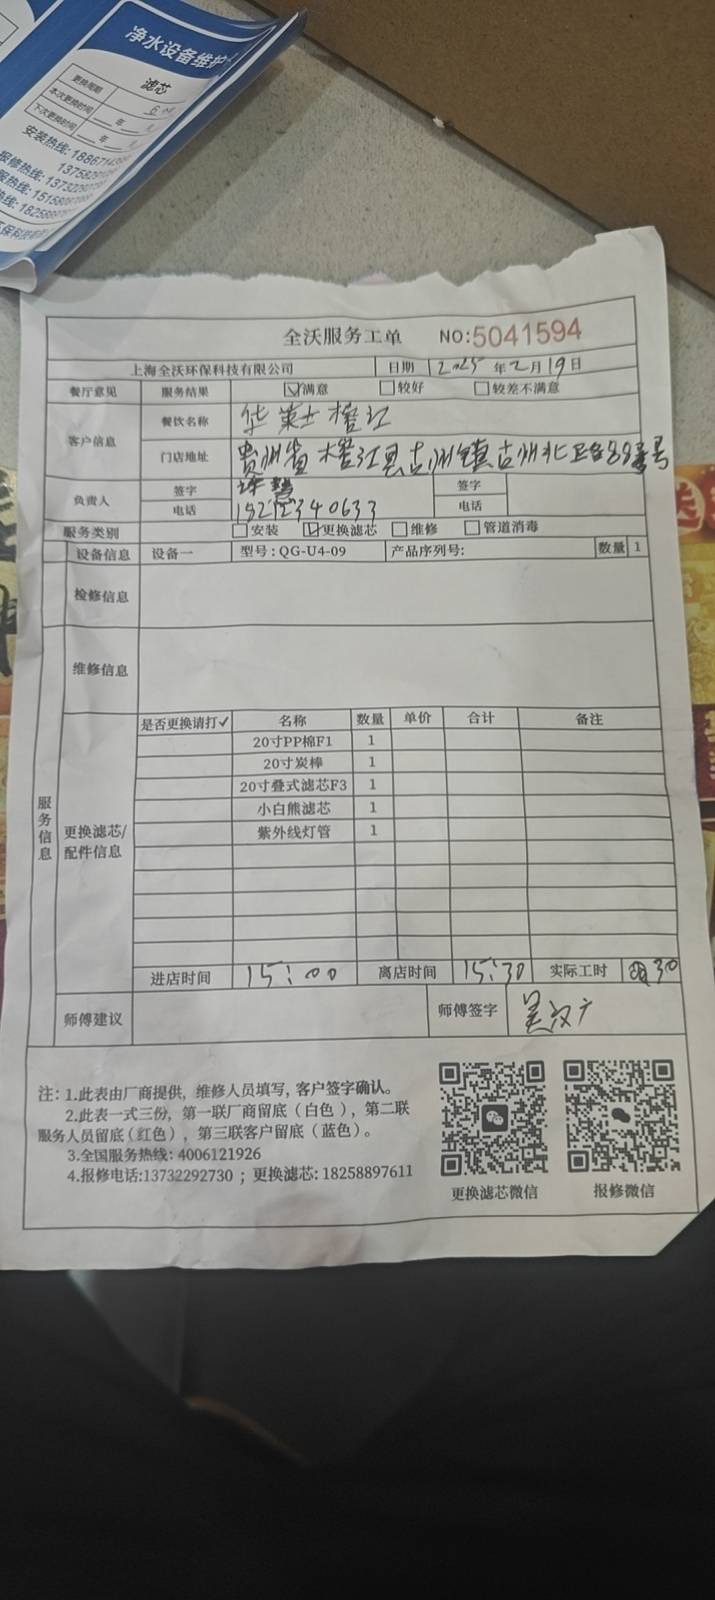 净水设备维护
滤芯
更换周期 6
本次更换时间 年
下次更换时间 年
安装热线:
全沃服务工单 NO:5041594
上海全沃环保科技有限公司 日期 2025年2月19日
餐厅意见 服务结果 ☑满意 □较好 □较差不满意
客户信息 餐饮名称 华莱士榕江
门店地址 贵州省榕江县古州镇古州北路89号
负责人 签字 签字
电话 电话
服务类别 □安装 ☑更换滤芯 □维修 □管道消毒
设备信息 设备一 型号:QG-U4-09 产品序列号: 数量 1
检修信息
维修信息
服务信息
更换滤芯/配件信息
是否更换请打✓ 名称 数量 单价 合计 备注
20寸PP棉F1 1
20寸炭棒 1
20寸叠式滤芯F3 1
小白熊滤芯 1
紫外线灯管 1
进店时间 15:00 离店时间 15:30 实际工时 30
师傅建议 师傅签字 吴汉广
注: 1.此表由厂商提供, 维修人员填写, 客户签字确认。
2.此表一式三份, 第一联厂商留底 (白色), 第二联
服务人员留底 (红色), 第三联客户留底 (蓝色)。
3.全国服务热线: 4006121926
4.报修电话:13732292730 ; 更换滤芯: 18258897611
更换滤芯微信 报修微信